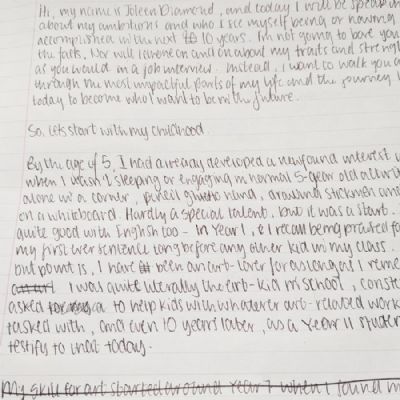 Hi, my name is Joleen Diamond, and today I will be speaking
about my ambitions and who I see myself being or having
accomplished with the next 10 years. I'm not going to bore you
the facts, Nor will I drone on and on about my traits and streng
as you would in a job interview. Instead, I want to walk you a
through the most impactful parts of my life and the journey I
today to become who I want to be in the future.
So, lets start with my childhood.
By the age of 5, I had already developed a newfound interest
when I wasn't sleeping or engaging in normal 5-year old activit
alone in a corner, pencil in hand, drawing stickmen an
on a whiteboard. Hardly a special talent, but it was a start.
quite good with English too - in Year 1, I recall being praised fo
my first ever sentence long before any other kid in my class.
but point is, I have been an art-lover for as long as I reme
I was quite literally the art-kid in school, const
asked to help kids with whatever art-related work
tasked with, and even 10 years later, as a Year 11 studen
testify to that today.
My skill for art started around Year 7 when I found m